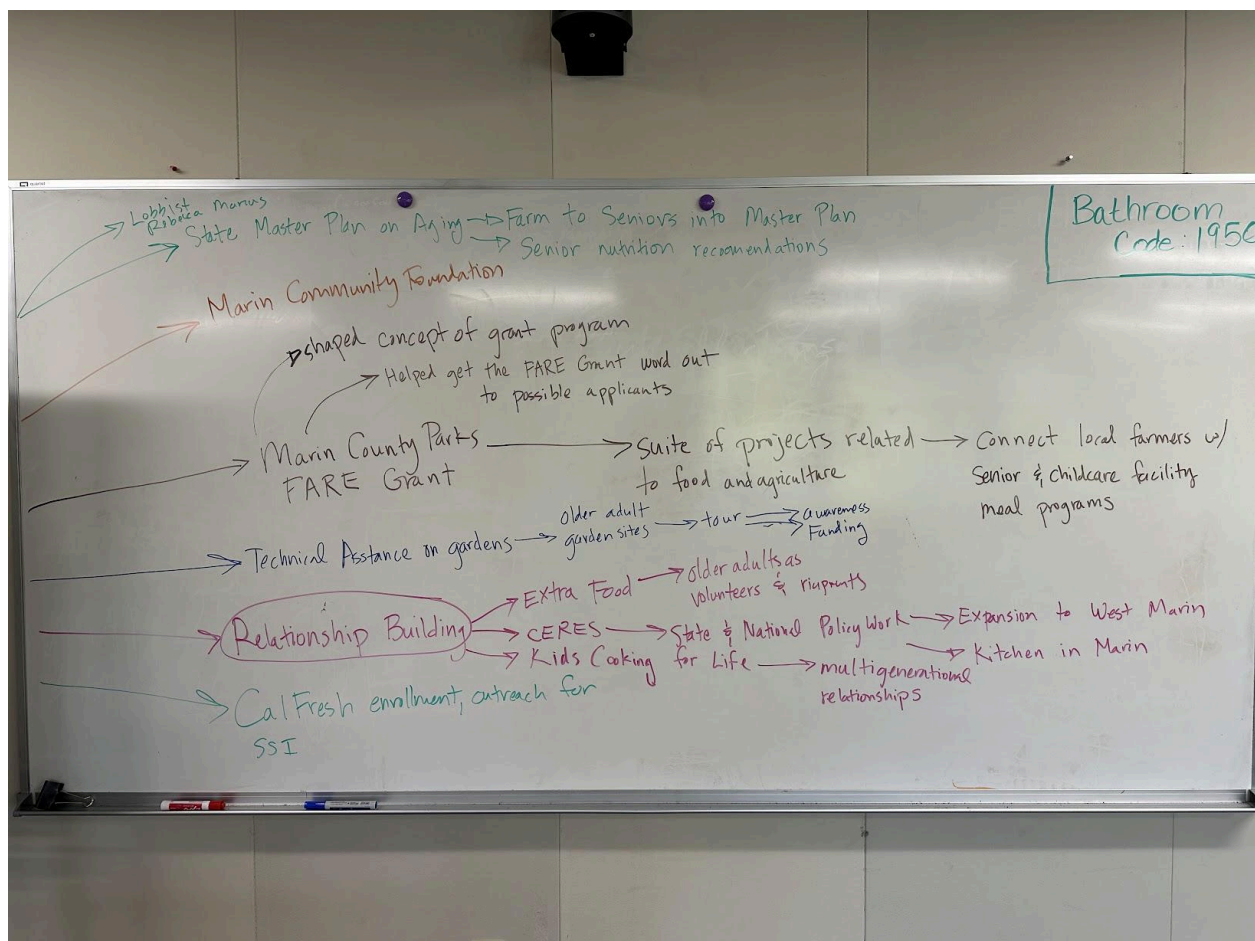 Lobbist
Ribecca Marcus
State Master Plan on Aging → Farm to Seniors into Master Plan
→ Senior nutrition recomendations
Bathroom
Code: 195
Marin Community Foundation
shaped concept of grant program
Helped get the FARE Grant word out
to possible applicants
Marin County Parks → Suite of projects related → Connect local farmers w/
FARE Grant
to food and agriculture
Senior & childcare facility
meal programs
Technical Asstance on gardens → older adult
garden sites → tour → awareness
Funding
Relationship Building
Extra Food → older adults as
volunteers &
CERES → State & National Policy Work → Expansion to West Marin
→ Kitchen in Marin
Kids Cooking for Life → multigenerational
relationships
CalFresh enrollment, outreach for
SSI